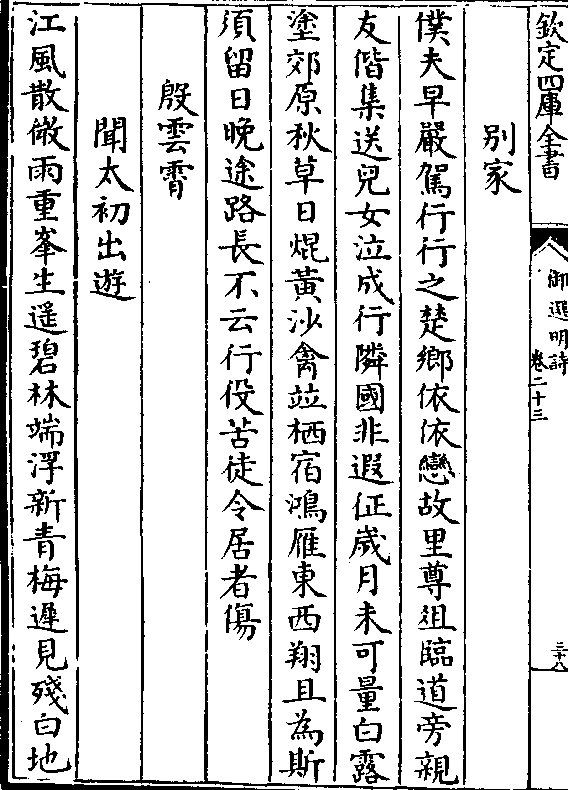 欽定四庫全書
御選明詩
卷二十三
三十八
別家
僕夫早嚴駕行行之楚鄉依依戀故里尊俎臨道旁親
友偕集送兒女泣成行隣國非遐征歲月未可量白露
塗郊原秋草日焜黃沙禽竝栖宿鴻雁東西翔且為斯
須留日晚途路長不云行役苦徒令居者傷
殷雲霄
聞太初出遊
江風散微雨重峯生遥碧林端浮新青梅遲見殘白地